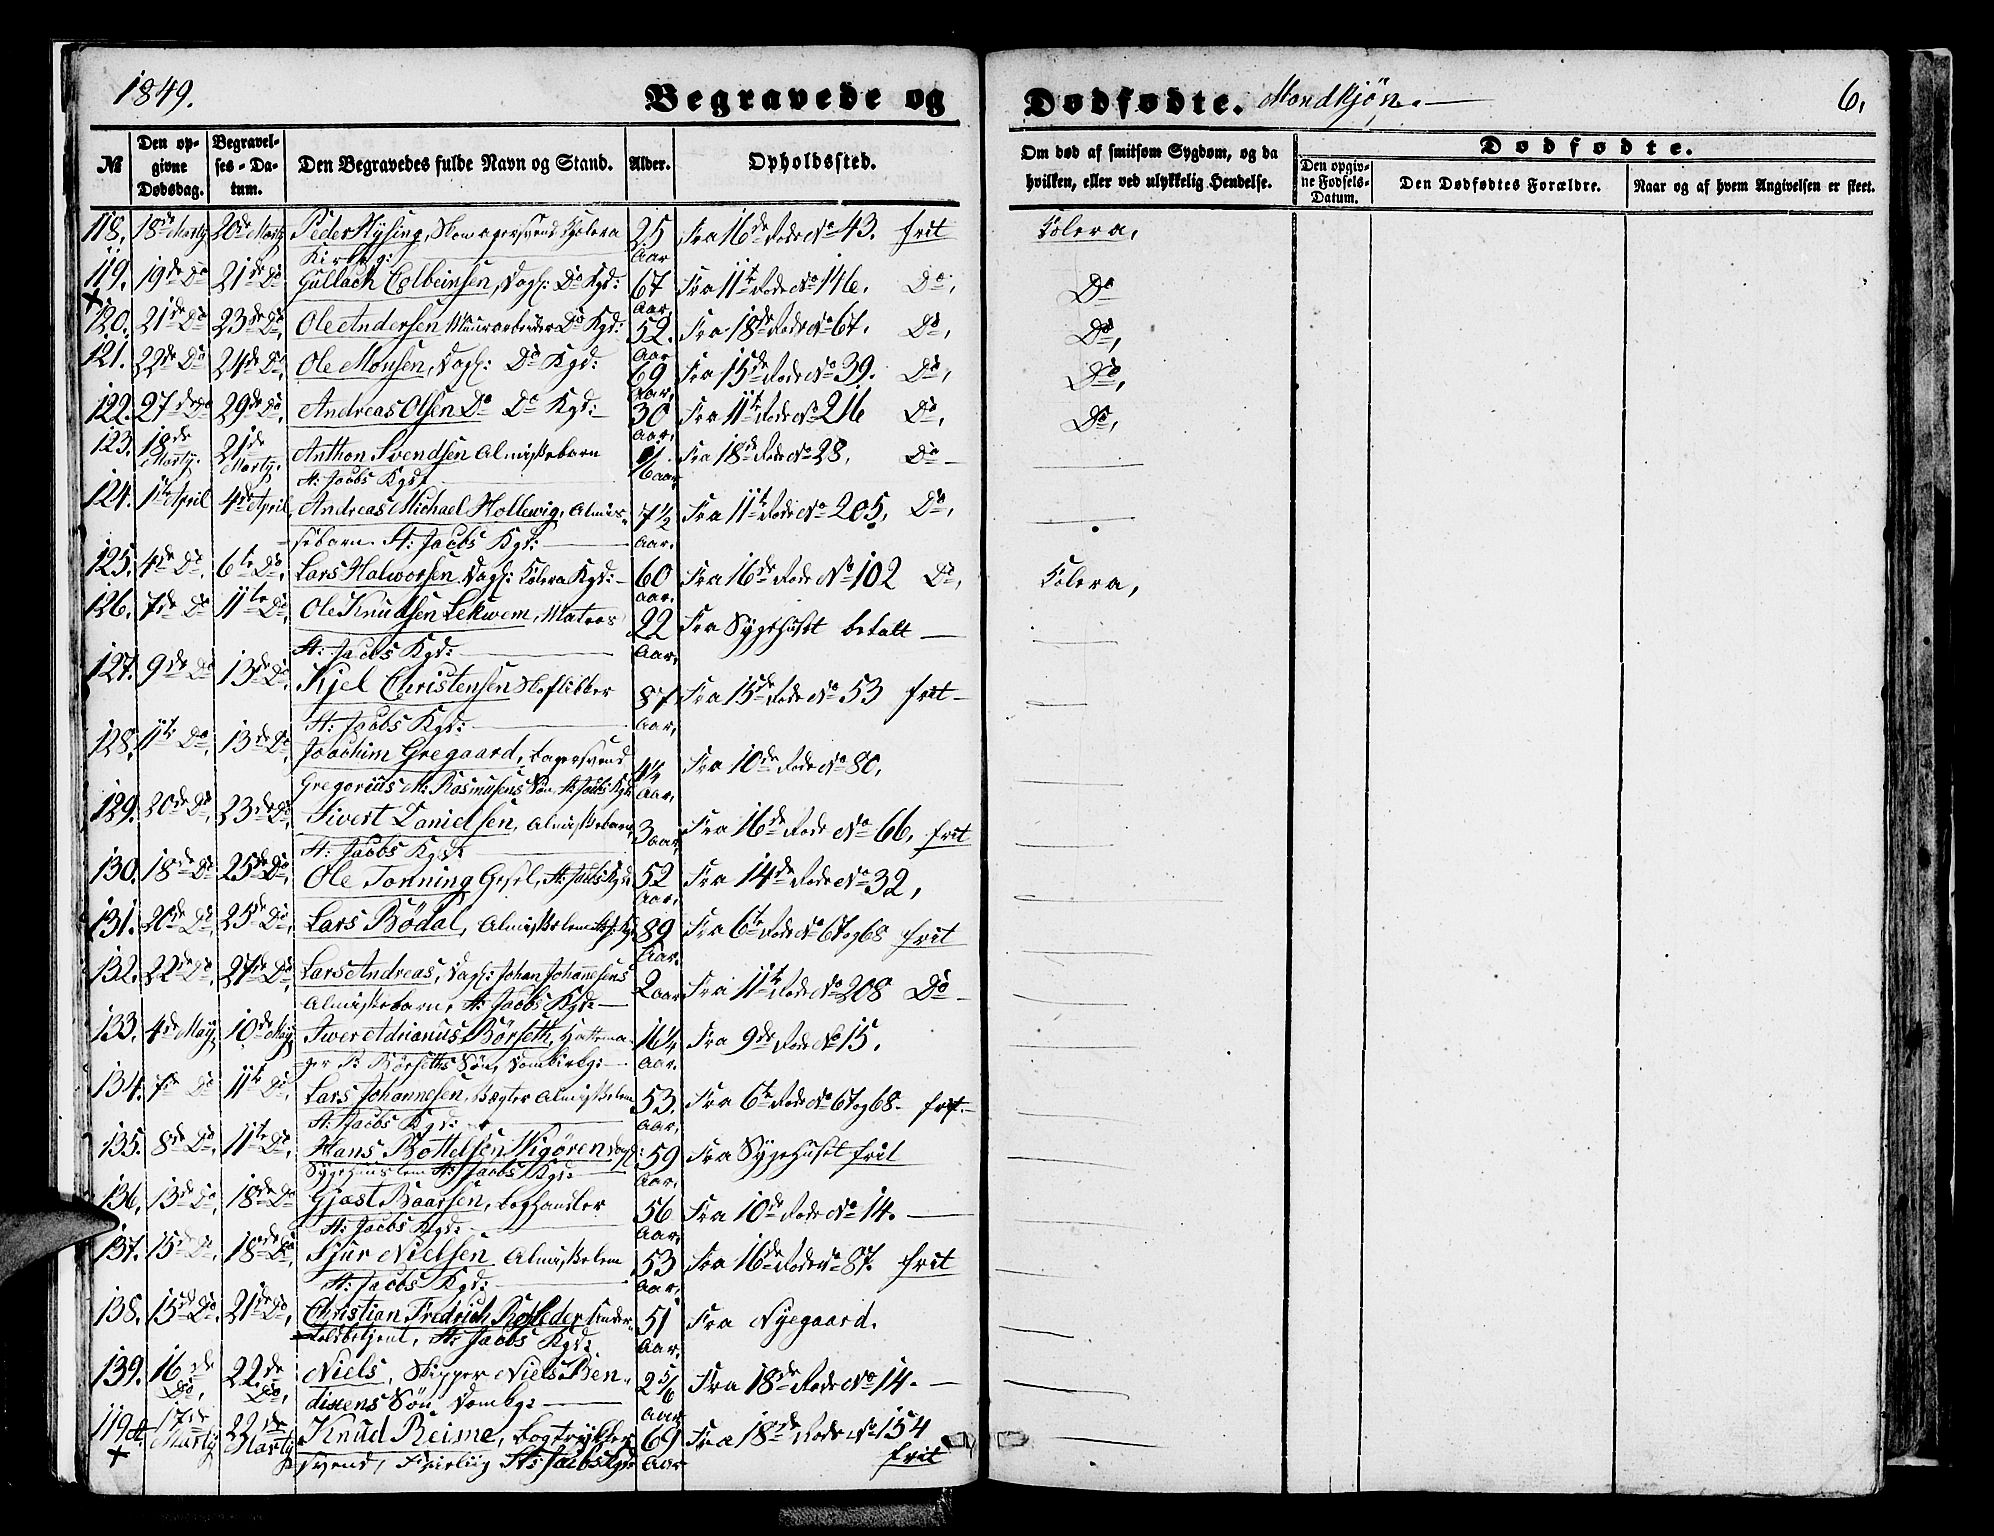 1849.
Begravede og
Dødfødte. Mandkjøn.
6.
№
Den opgivne Dødsdag.
Begravelses-Datum.
Den Begravedes fulde Navn og Stand.
Alder.
Opholdssted.
Om død af smitsom Sygdom, og da hvilken, eller ved ulykkelig Hendelse.
Dødfødte.
Den opgivne Fødsels-Datum.
Den Dødfødtes Forældre.
Naar og af hvem Angivelsen er skeet.
118. 18de Marty 20de Marty Peder Kysing, Kolera 25 Fra 16de Rode No 43. frit Kolera,
Kirkeg: Aar
119. 19de Do 21de Do Gullach Colbeinsen, Dags: Do Kgd: 67 Fra 11te Rode No 146. Do, Do
+ Aar,
120. 21de Do 23de Do, Ole Andersen Murarbeider Do Kgd: 52. Fra 18de Rode No 67. Do, Do,
Aar
121. 22de Do 24de Do Ole Monsen, Dags: Do Kgd: 69 Fra 15de Rode No 39. Do, Do,
Aar,
122. 27de Do 29de Do, Andreas Olsen Do Do Kgd: 30 Fra 11te Rode No 216 Do, Do,
Aar,
123. 18de Marty. 21de Marty. Anthon Svendsen Almissebarn Fra 18de Rode No 28. Do
St: Jacobs Kgd:
124. 1te April 4de April, Andreas Michael Hollewig, Almis- 7½ Fra 11te Rode No 205, Do,
sebarn. St: Jacobs Kgd: Aar.
125. 4de Do, 6te Do, Lars Halworsen Dags: Kolera Kgd: 60 Fra 16de Rode No 102 Do, Kolera,
Aar.
126. 7de Do 11te Do, Ole Knudsen Lekwem, Matros 22 Fra Sygehuset betalt
St: Jacobs Kgd: Aar,
127. 9de Do 13de Do, Kjel Christensen 87 Fra 15de Rode No 53 frit
St: Jacobs Kgd: Aar,
128. 11te Do, 13de Do, Joachim Gregaard, Bagersvend Fra 10de Rode No 80,
Gregorius M: Rasmusens Søn St: Jacobs Kgd: Aar,
129. 20de Do, 23de Do, Sivert Danielsen, Almissebarn, 3 aar, Fra 16de Rode No 66, frit
St: Jacobs Kgd:
130. 18de Do 25de Do, Ole Tonning Gesel, St: Jacobs Kgd: 52 Fra 14de Rode No 32,
Aar,
131. 20de Do, 25de Do, Lars Bödal, Almisselem 89 Fra 6te Rode No 67 og 68 frit
Aar.
132. 22de Do, 27de Do, Lars Andreas, Dags: Johan Johannesens 2 aar Fra 11te Rode No 208 Do
Almissebarn, St: Jacobs Kgd:
133. 4de May, 10de May, Iwer Adrianus Börseth, Hattema- 16¼ Fra 9de Rode No 15.
ger P. Börseths Søn, Domkirkg: Aar.
134. 7de Do 11te Do, Lars Johannesen, Almisselem 53. Fra 6te Rode No 67 og 68. frit.
St: Jacobs Kgd: Aar.
135. 8de Do, 11te Do, Hans Bottelsen Wigören Dags: 59 Fra Sygehuset frit
Sygehuuslem St: Jacobs Kgd: Aar.
136. 13de Do, 18de Do Gjæst Baarsen, 56 Fra 10de Rode No 14.
St: Jacobs Kgd: Aar.
137. 15de Do, 18de Do, Sjur Nielsen Almisselem 53 Fra 16de Rode No 87. frit
St: Jacobs Kgd: Aar,
138. 15de Do. 21de Do, Christian Fredrich Under- 51 Fra Nyegaard.
toldbetjent, St: Jacobs Kgd: Aar.
139. 16de Do, 22de Do, Niels, Skipper Niels Ben- 2 5/6 Fra 18de Rode No 14.
dixens Søn, Dombg: Aar
119 A. 17de Marty 22de Marty Knud Reime, Bogtrykker 69 Fra 18de Rode No 154
+ svend, St: Jacobs Kgd: Aar frit